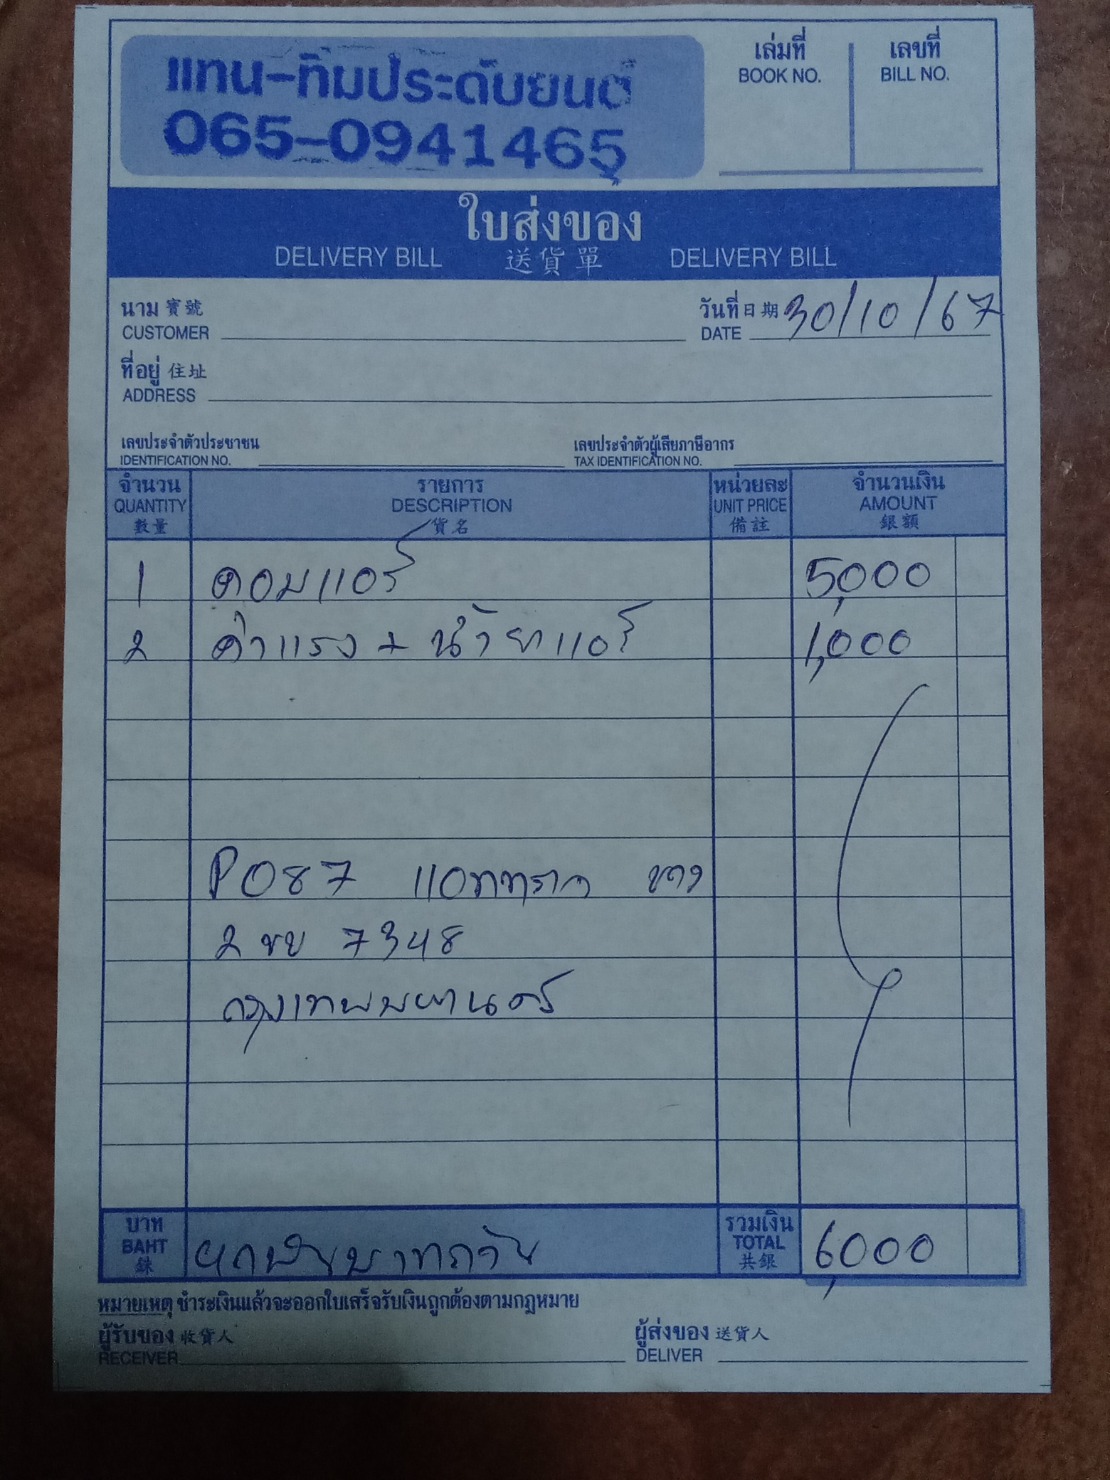 แทน-ทิมประดับยนต์
065-0941465
เล่มที่
BOOK NO.
เลขที่
BILL NO.
ใบส่งของ
DELIVERY BILL 送貨單 DELIVERY BILL
นาม 寶號
CUSTOMER
วันที่ 日期 30/10/67
DATE
ที่อยู่ 住址
ADDRESS
เลขประจำตัวประชาชน
IDENTIFICATION NO.
เลขประจำตัวผู้เสียภาษีอากร
TAX IDENTIFICATION NO.
จำนวน รายการ หน่วยละ จำนวนเงิน
QUANTITY DESCRIPTION UNIT PRICE AMOUNT
數量 貨名 備註 銀額
1 คอมแอร์ 5,000
2 ค่าแรง + น้ำยาแอร์ 1,000
P087
2 ขบ 7348
กรุงเทพมหานคร
บาท
BAHT
銖
หกพันบาทถ้วน
รวมเงิน
TOTAL
共銀
6,000
หมายเหตุ ชำระเงินแล้วจะออกใบเสร็จรับเงินถูกต้องตามกฎหมาย
ผู้รับของ 收貨人
RECEIVER
ผู้ส่งของ 送貨人
DELIVER